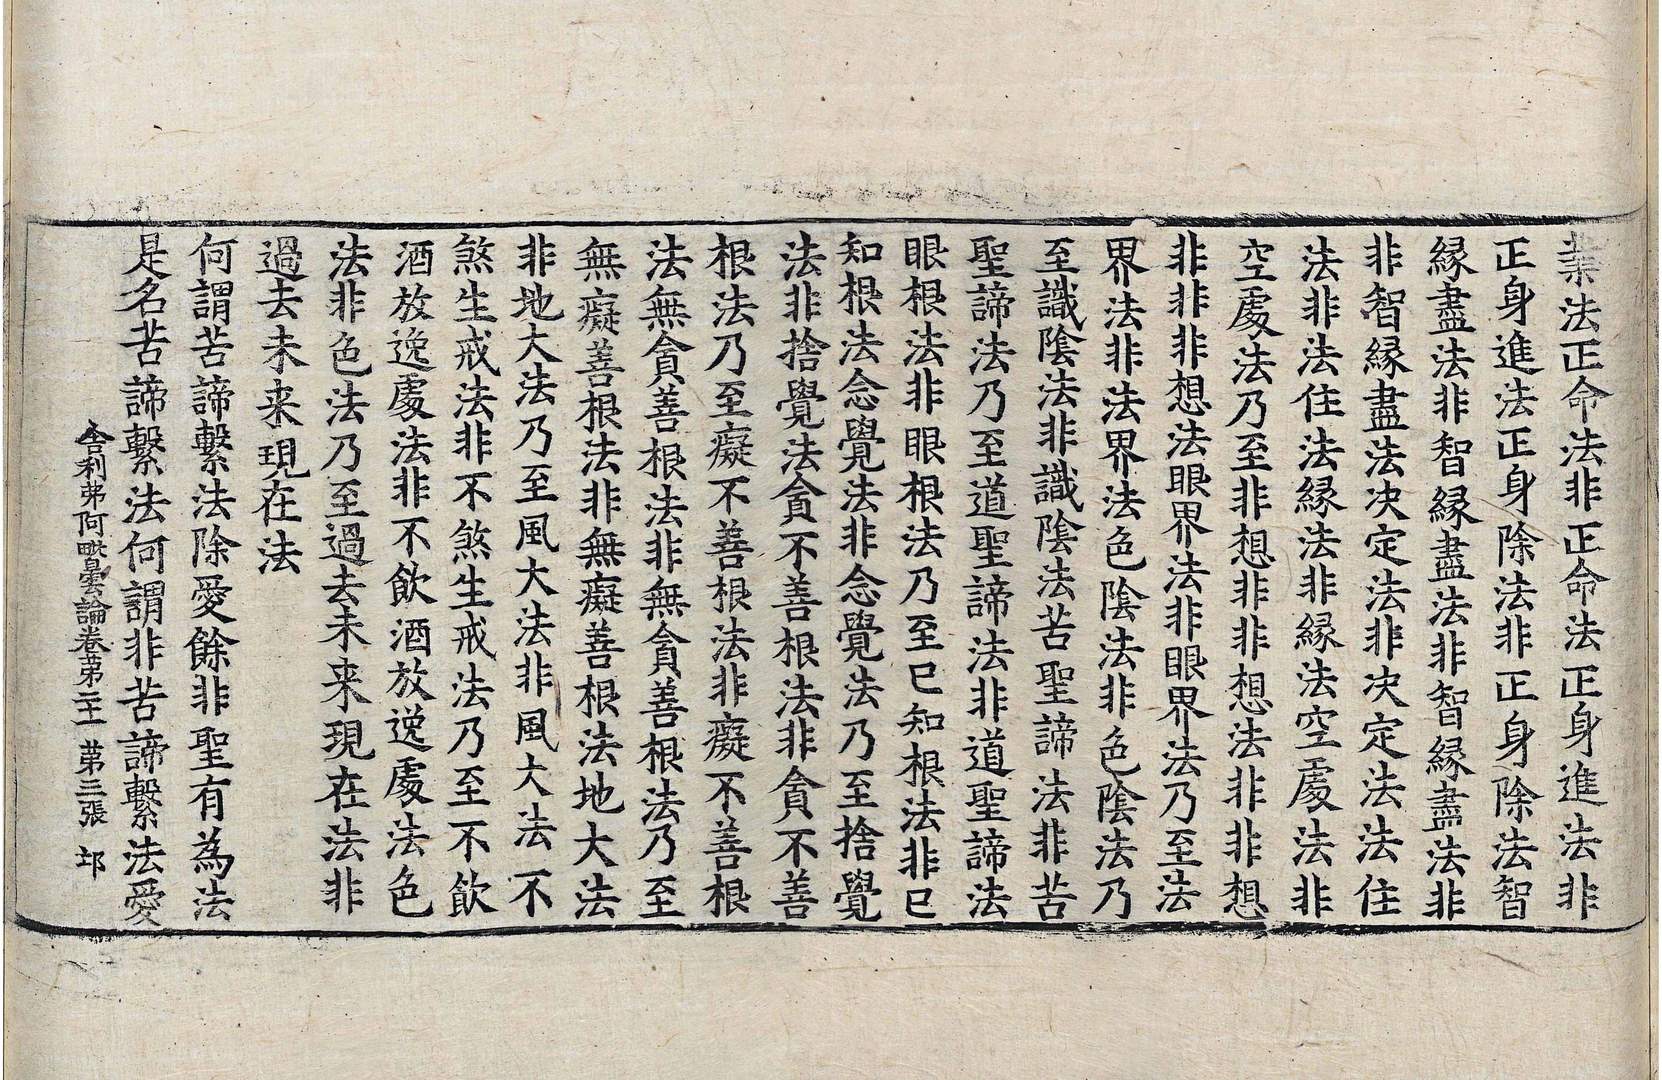 業法正命法非正命法正身進法非
正身進法正身除法非正身除法智
縁盡法非智縁盡法非智縁盡法非
非智縁盡法決定法非決定法法住
法非法住法縁法非縁法空處法非
空處法乃至非想非非想法非非想
非非非想法眼界法非眼界法乃至法
界法非法界法色陰法非色陰法乃
至識陰法非識陰法苦聖諦法非苦
聖諦法乃至道聖諦法非道聖諦法
眼根法非眼根法乃至已知根法非已
知根法念覺法非念覺法乃至捨覺
法非捨覺法貪不善根法非貪不善
根法乃至癡不善根法非癡不善根
法無貪善根法非無貪善根法乃至
無癡善根法非無癡善根法地大法
非地大法乃至風大法非風大法不
煞生戒法非不煞生戒法乃至不飲
酒放逸處法非不飲酒放逸處法色
法非色法乃至過去未来現在法非
過去未来現在法
何謂苦諦繫法除愛餘非聖有為法
是名苦諦繫法何謂非苦諦繫法愛
舍利弗阿毗曇論卷苐二十 苐三張